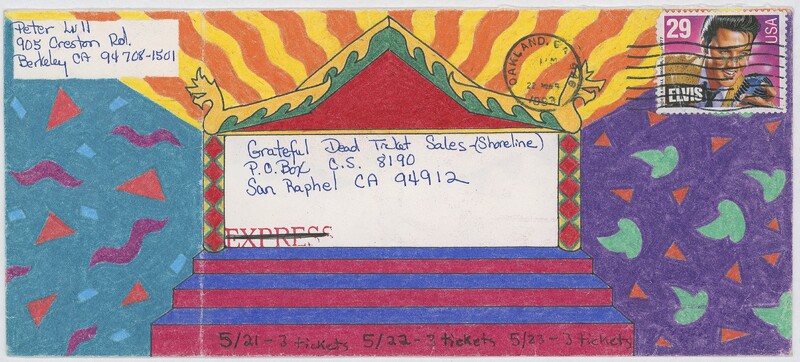 Peter Lull
905 Creston Rd.
Berkeley CA 94708-1501
OAKLAND, CA
PM
22 MAR
1993
29
USA
ELVIS
Grateful Dead Ticket Sales-(Shoreline)
P.O. Box C.S. 8190
San Raphel CA 94912
EXPRESS
5/21-3 tickets 5/22-3 tickets 5/23-3 tickets